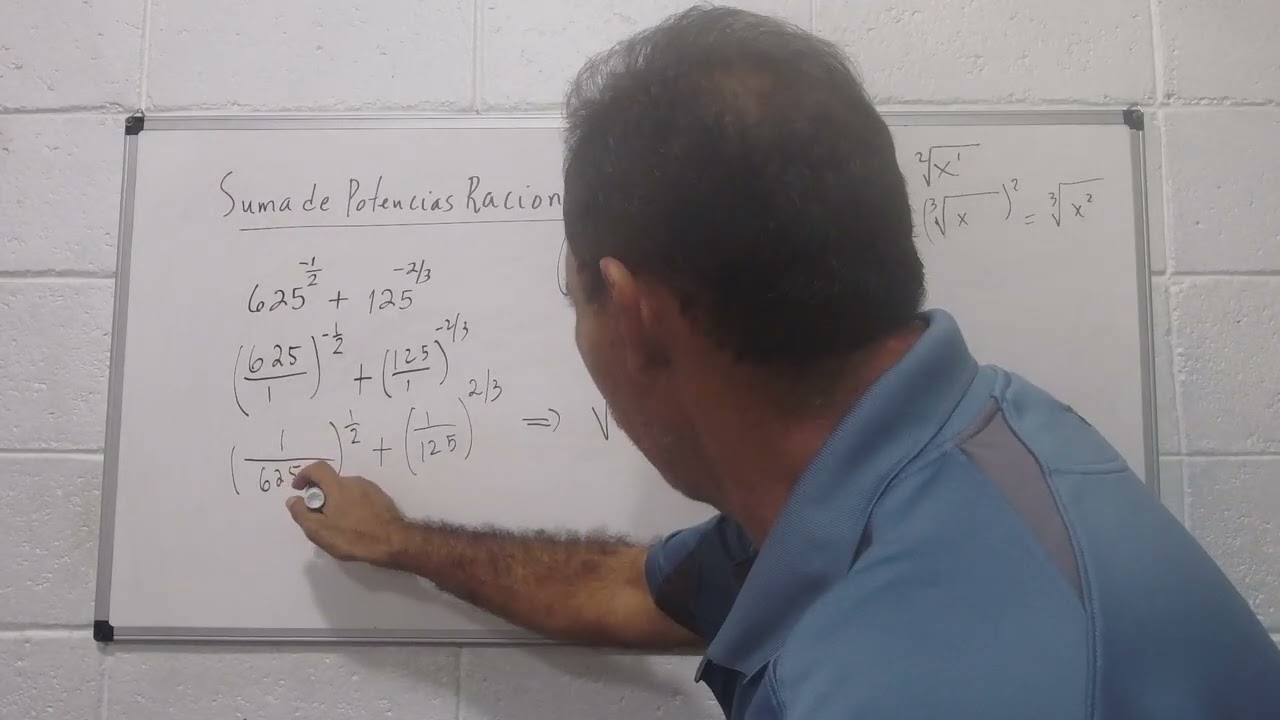 Suma de Potencias Racion
625^-1/2 + 125^-2/3
(625/1)^-1/2 + (125/1)^-2/3
(1/625)^1/2 + (1/125)^2/3 ⇒ √
²√x¹
(³√x)² = ³√x²